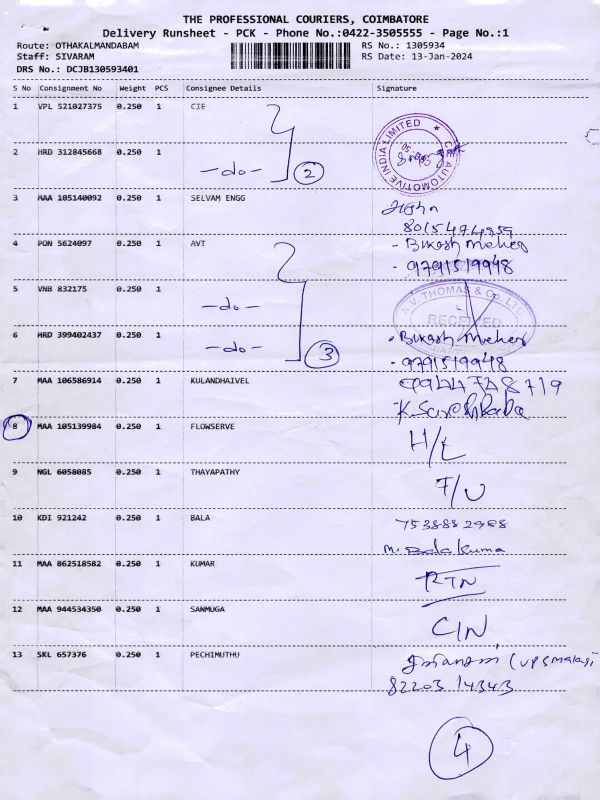 THE PROFESSIONAL COURIERS, COIMBATORE
Delivery Runsheet - PCK - Phone No.:0422-3505555 - Page No.:1
Route: OTHAKALMANDABAM RS No.: 1305934
Staff: SIVARAM RS Date: 13-Jan-2024
DRS No.: DCJB130593401
S No Consignment No Weight PCS Consignee Details Signature
1 VPL 521027375 0.250 1 CIE
2 HRD 312845668 0.250 1 -do- 2
INDIA LIMITED CIE AUTOMOTIVE
3 MAA 105140092 0.250 1 SELVAM ENGG
4 PON 5624097 0.250 1 AVT - Bikash Meher
- 9791519948
5 VNB 832175 0.250 1 -do-
A.V. THOMAS & Co. LTD
RECEIVED
6 HRD 399402437 0.250 1 -do- 3 - Bikash Meher
- 9791519948
7 MAA 106586914 0.250 1 KULANDHAIVEL 9944748719
8 MAA 105139984 0.250 1 FLOWSERVE H/L
9 NGL 6058085 0.250 1 THAYAPATHY
10 KDI 921242 0.250 1 BALA 7538882988
11 MAA 862518582 0.250 1 KUMAR RTN
12 MAA 944534350 0.250 1 SANMUGA C/N
13 SKL 657376 0.250 1 PECHIMUTHU
82203 14343
4